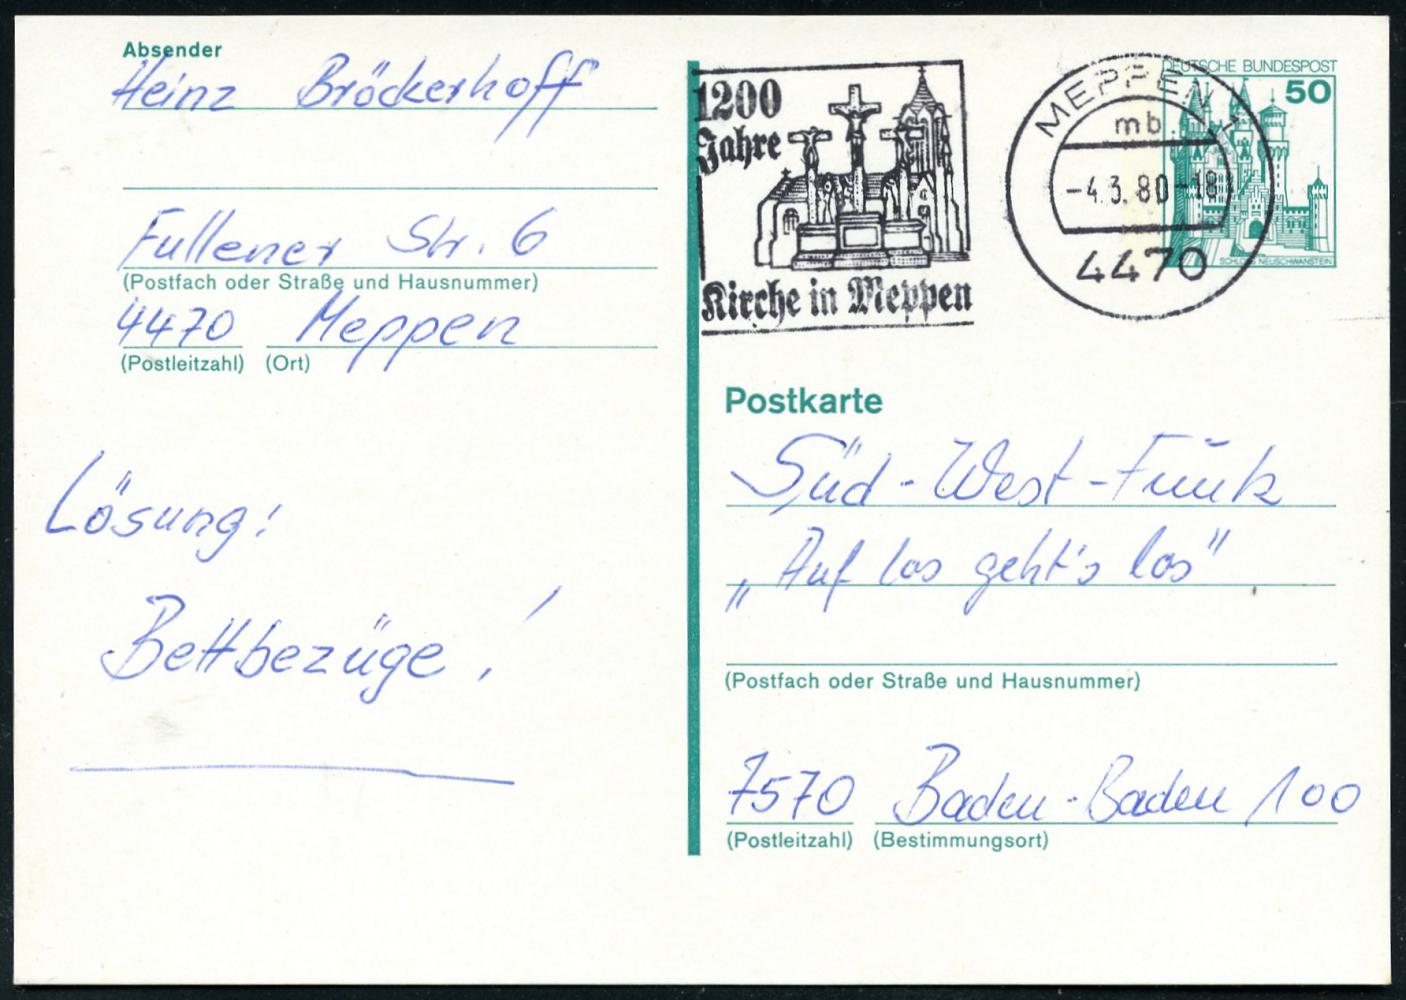 Absender
Heinz Bröckerhoff
Fullener Str. 6
(Postfach oder Straße und Hausnummer)
4470 Meppen
(Postleitzahl) (Ort)
Lösung!
Bettbezüge!
1200
Jahre
Kirche in Meppen
MEPPEN 1
mb
-4.3.80-18
4470
DEUTSCHE BUNDESPOST
50
SCHLOSS NEUSCHWANSTEIN
Postkarte
Süd-West-Funk
„Auf los geht's los"
(Postfach oder Straße und Hausnummer)
7570 Baden-Baden 100
(Postleitzahl) (Bestimmungsort)